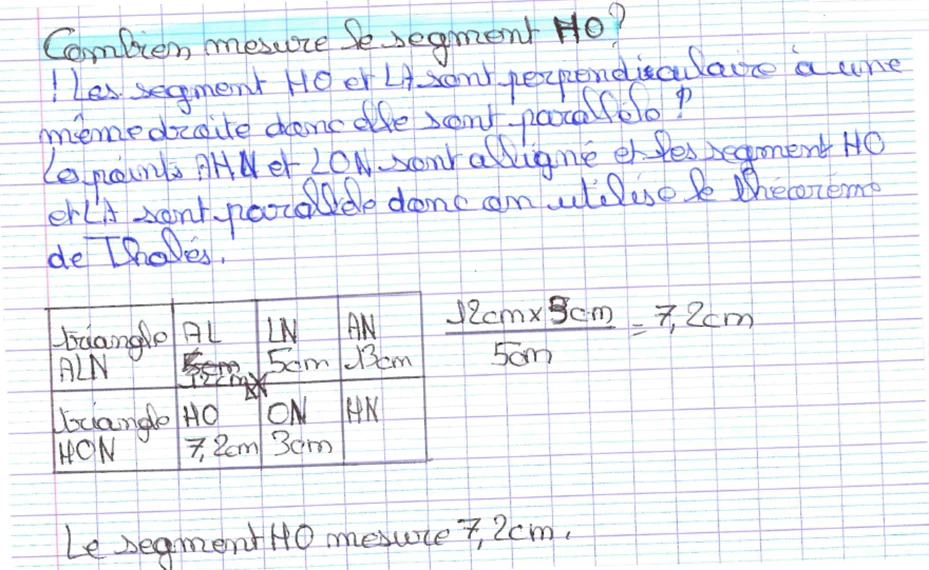 Combien mesure le segment HO?
! Les segment HO et LA sont perpendiculaire à une
même droite donc elle sont parallèle?
Les points AHN et LON sont alligné et les segment HO
et LA sont parallèle donc on utilise le théorème
de Thalès.
triangle AL LN AN
ALN 12cm 5cm 13cm
triangle HO ON HN
HON 7,2cm 3cm
12cm x 3cm = 7,2cm
5cm
Le segment HO mesure 7,2cm.